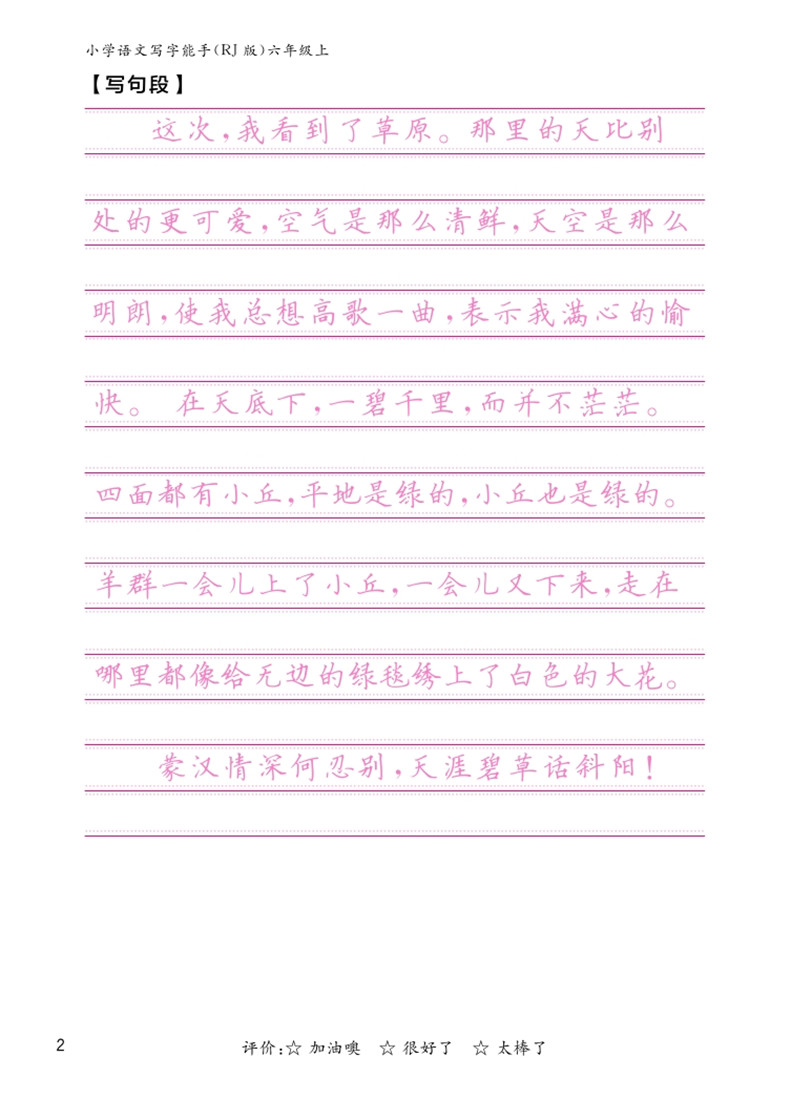 小学语文写字能手(RJ版)六年级上
【写句段】
这次,我看到了草原。那里的天比别
处的更可爱,空气是那么清鲜,天空是那么
明朗,使我总想高歌一曲,表示我满心的愉
快。 在天底下,一碧千里,而并不茫茫。
四面都有小丘,平地是绿的,小丘也是绿的。
羊群一会儿上了小丘,一会儿又下来,走在
哪里都像给无边的绿毯绣上了白色的大花。
蒙汉情深何忍别,天涯碧草话斜阳!
2
评价:☆ 加油噢 ☆ 很好了 ☆ 太棒了